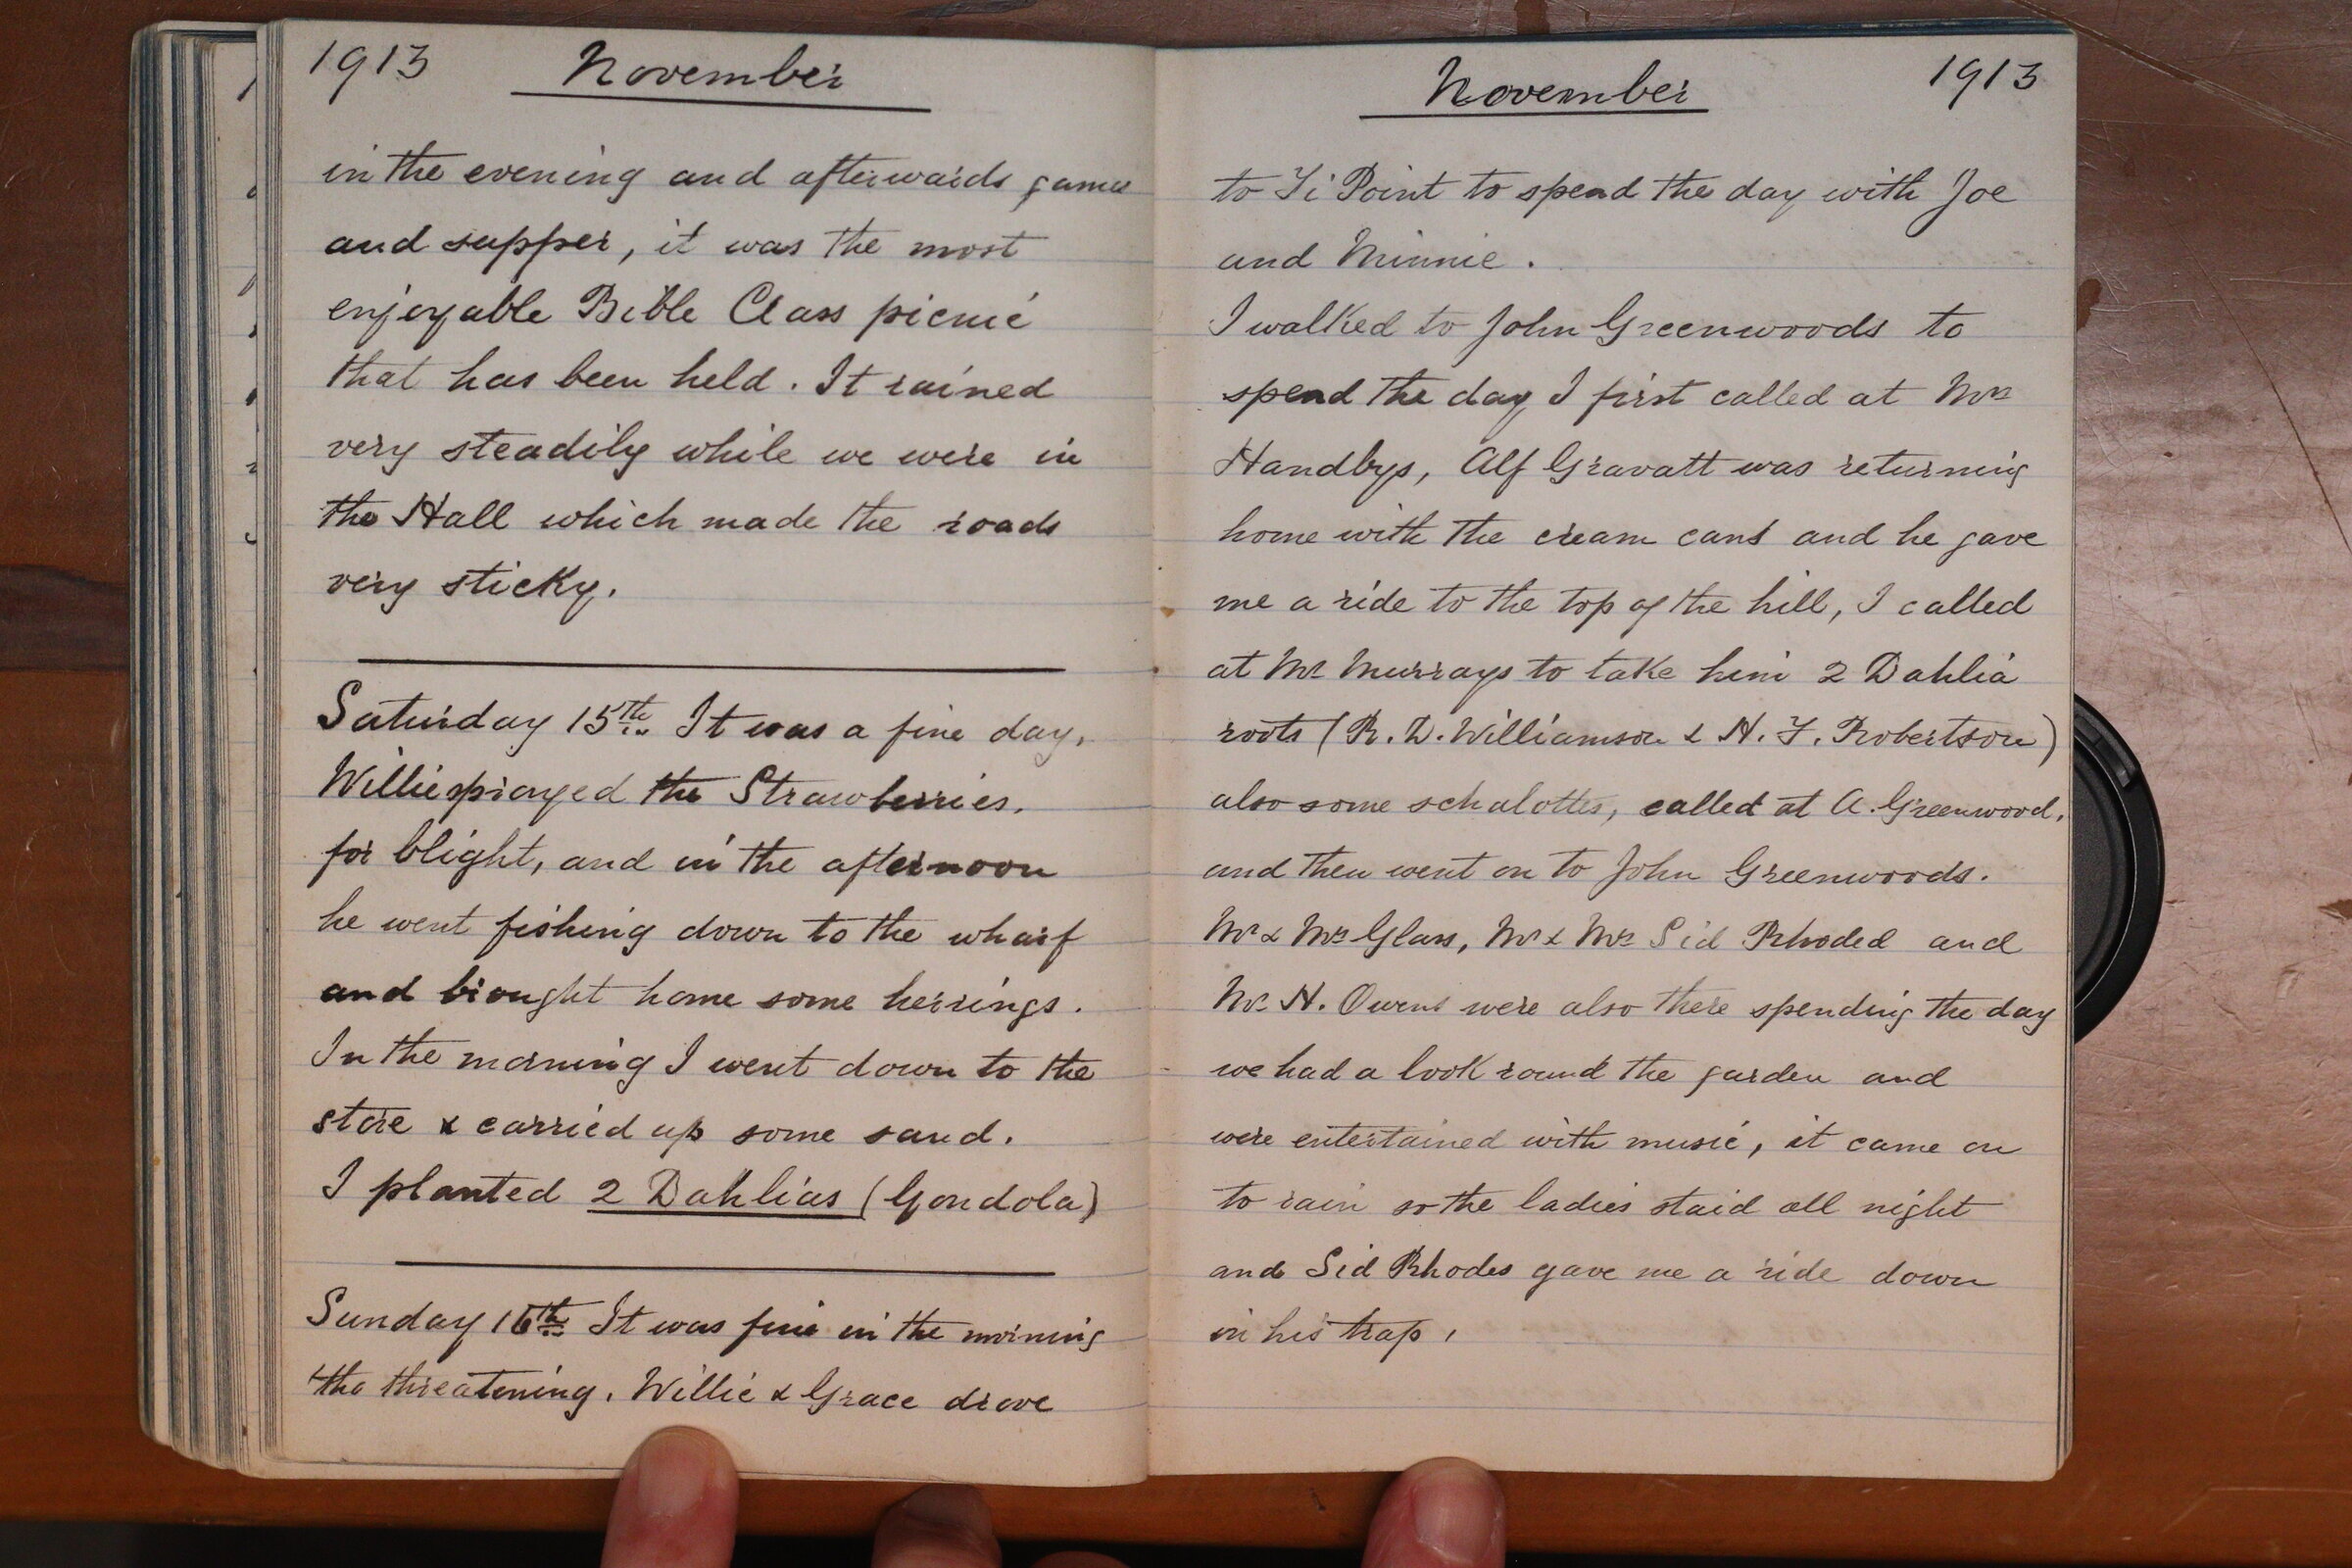 1913 November
in the evening and afterwards games
and supper, it was the most
enjoyable Bible Class picnic
that has been held. It rained
very steadily while we were in
the Hall which made the roads
very sticky.
Saturday 15th It was a fine day,
Willie sprayed the Strawberries.
for blight, and in the afternoon
he went fishing down to the wharf
and brought home some herrings.
In the morning I went down to the
store & carried up some sand.
I planted 2 Dahlias (Gondola)
Sunday 16th It was fine in the morning
tho threatening. Willie & Grace drove
November 1913
to Ti Point to spend the day with Joe
and Minnie.
I walked to John Greenwoods to
spend the day I first called at Mrs
Handbys, Alf Gravatt was returning
home with the cream cans and he gave
me a ride to the top of the hill, I called
at Mr Murrays to take him 2 Dahlia
roots (R. W. Williamson & H. F. Robertson)
also some schalottes, called at A. Greenwood,
and then went on to John Greenwoods.
Mr & Mrs Glass, Mr & Mrs Sid Rhoded and
Mr H. Owens were also there spending the day
we had a look round the garden and
were entertained with music, it came on
to rain so the ladies staid all night
and Sid Rhodes gave me a ride down
in his trap,